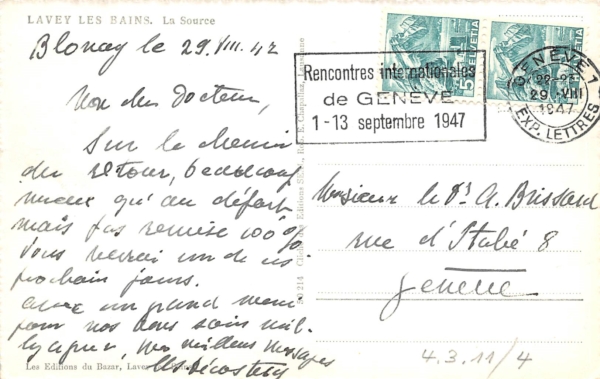 LAVEY LES BAINS. La Source
Blonay le 29.VIII.47
Mon cher Docteur,
Sur le chemin
du retour, beaucoup
mieux qu'au départ
mais pas remise 100%
Vous verrai un de ces
prochain jours.
avec un grand merci
pour vos bons soins
meilleurs messages
Les Editions du Bazar, Lavey
HELVETIA
5
HELVETIA
5
Rencontres internationales
de GENEVE
1-13 septembre 1947
GENÈVE 1
29.VIII
1947
EXP. LETTRES
Monsieur le Dr A. Brissard
rue d'Italie 8
Genève
4.3.11/4